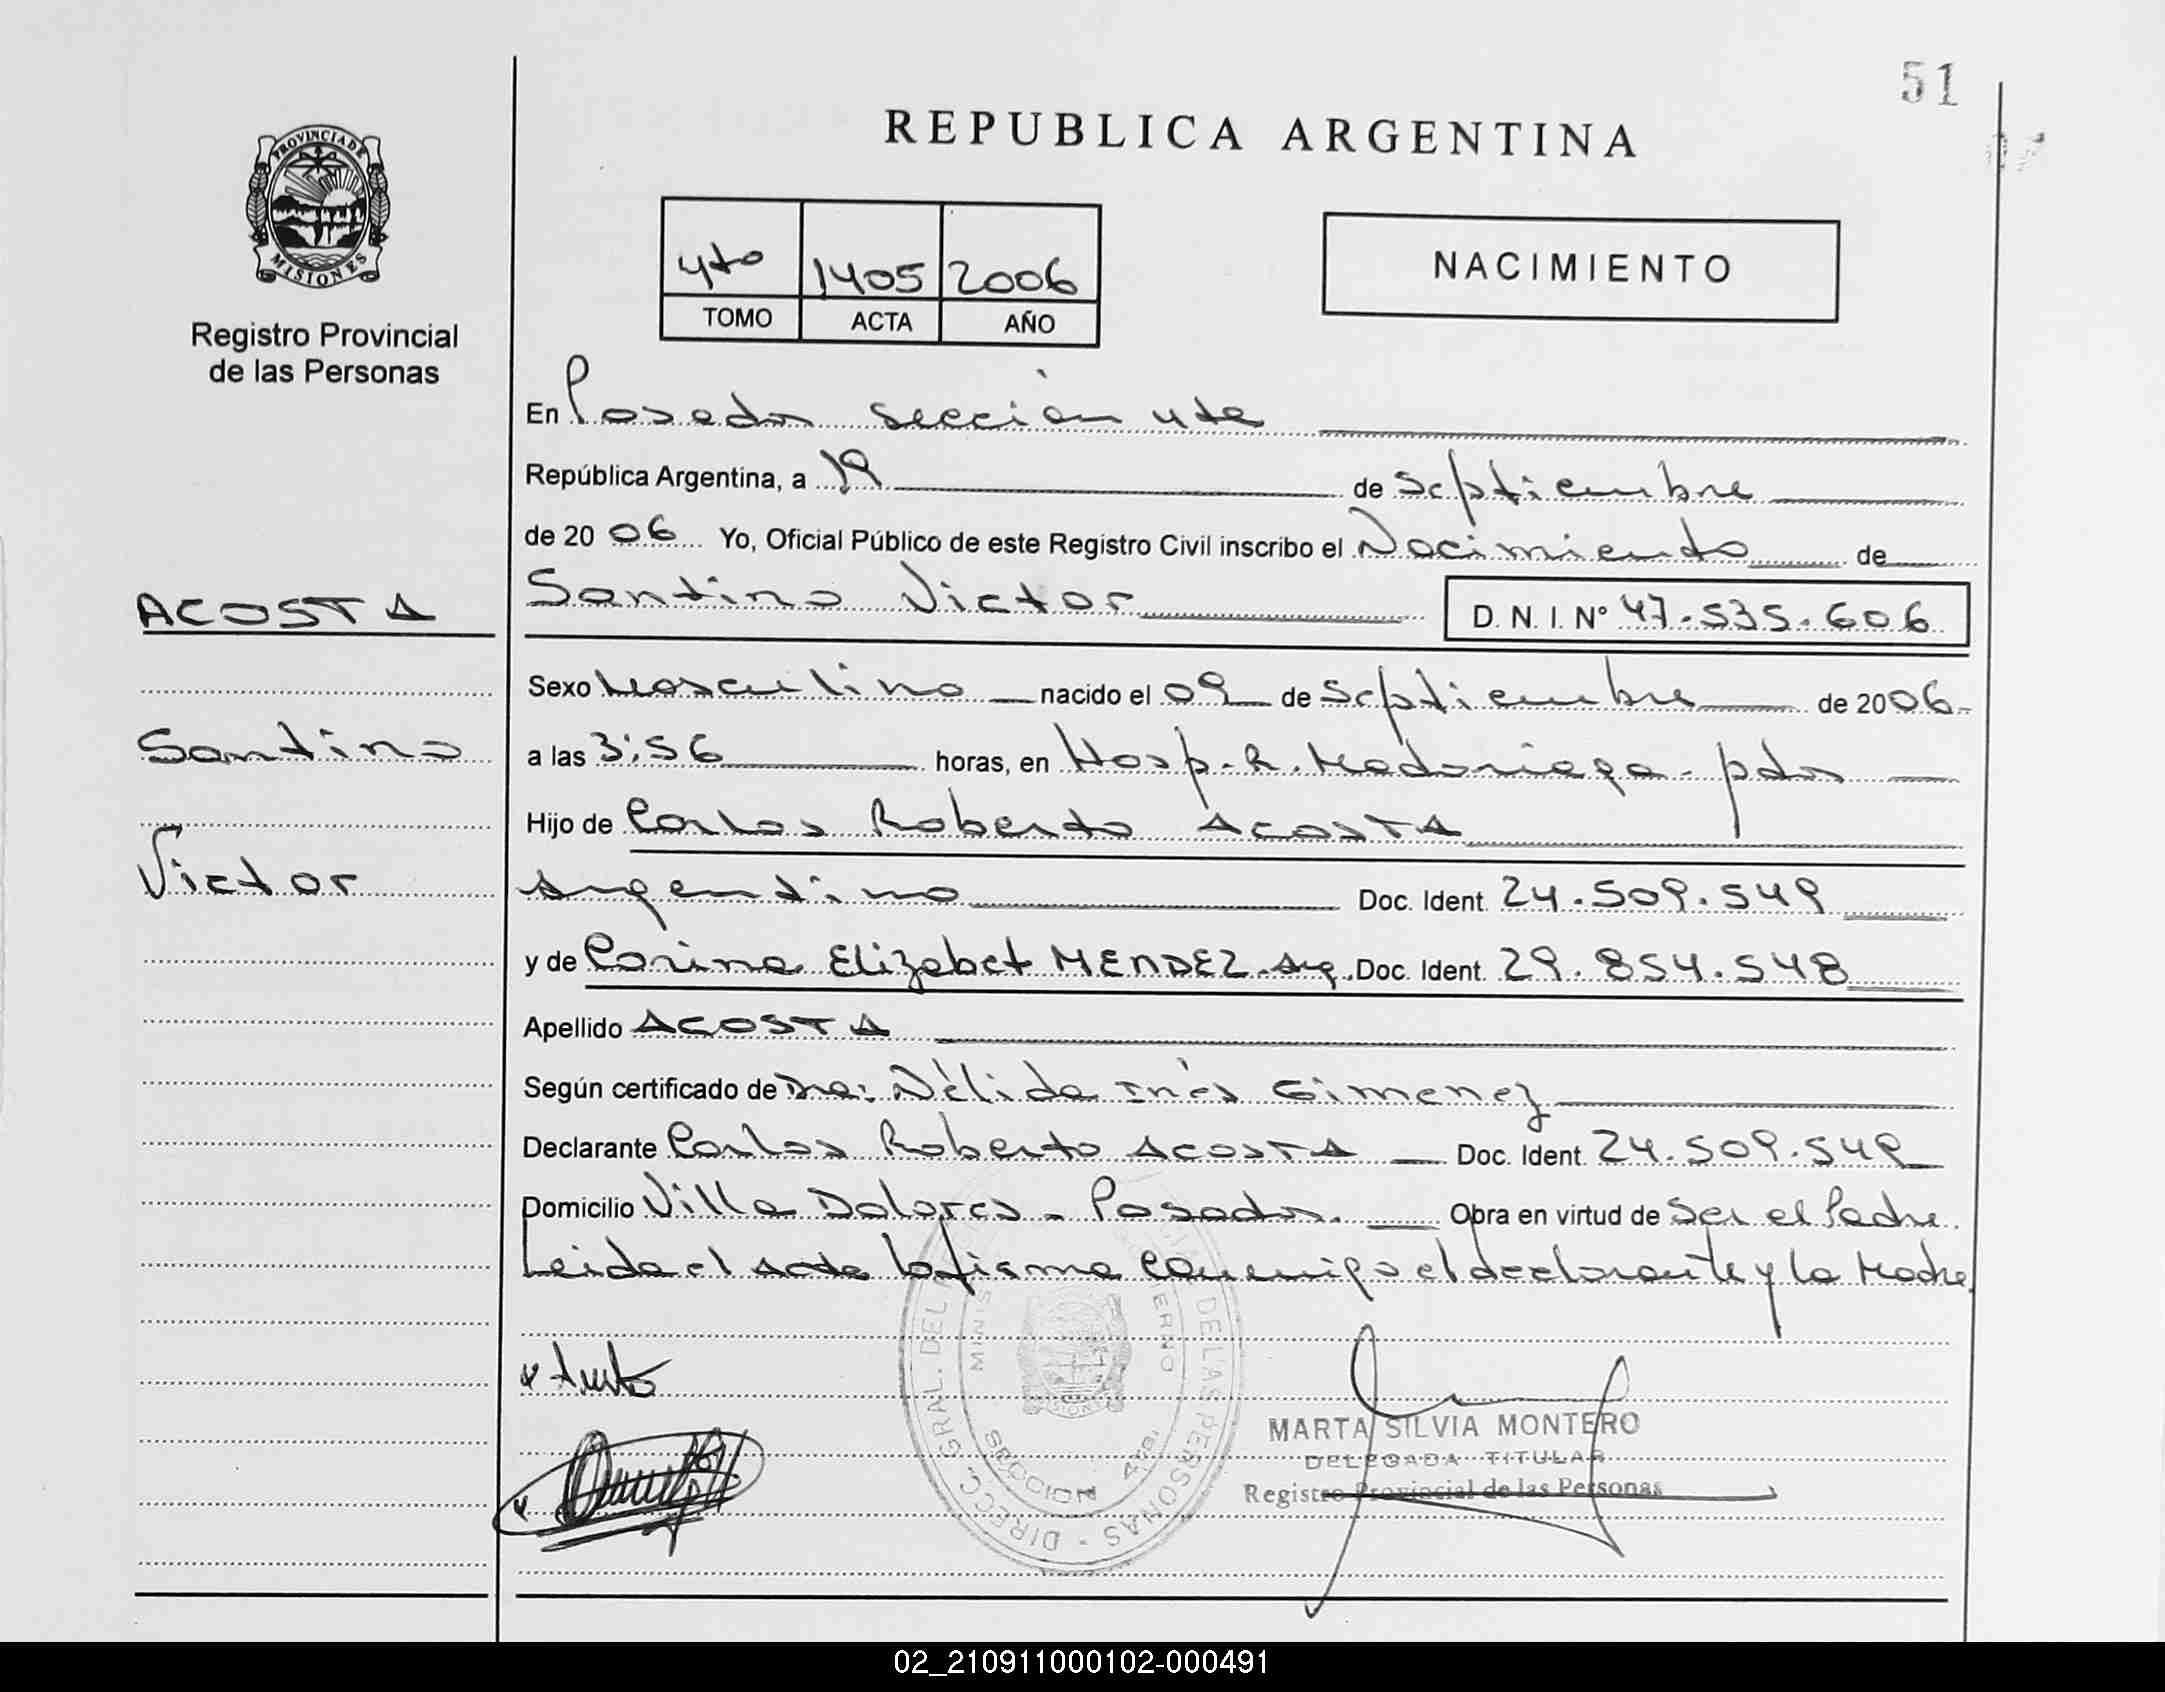 51
REPUBLICA ARGENTINA
PROVINCIA DE
MISIONES
Registro Provincial
de las Personas
4to 1405 2006
TOMO ACTA AÑO
NACIMIENTO
En Posadas sección 4ta
República Argentina, a 19 de Septiembre
de 2006 Yo, Oficial Público de este Registro Civil inscribo el Nacimiento de
Santino Victor D. N. I. Nº 47.535.606
ACOSTA
Santino
Victor
Sexo Masculino nacido el 09 de Septiembre de 2006.
a las 3:56 horas, en Hosp. R. Madariaga - pdas
Hijo de Carlos Roberto ACOSTA
Argentino Doc. Ident. 24.509.549
y de Corina Elizabet MENDEZ. Arg. Doc. Ident. 29.854.548
Apellido ACOSTA
Según certificado de Dra: Nélida Inés Gimenez
Declarante Carlos Roberto ACOSTA Doc. Ident. 24.509.549
Domicilio Villa Dolores - Posadas. Obra en virtud de Ser el Padre.
Leida el Acta la firma conmigo el declarante y la Madre
MARTA SILVIA MONTERO
DELEGADA TITULAR
Registro Provincial de las Personas
02_210911000102-000491